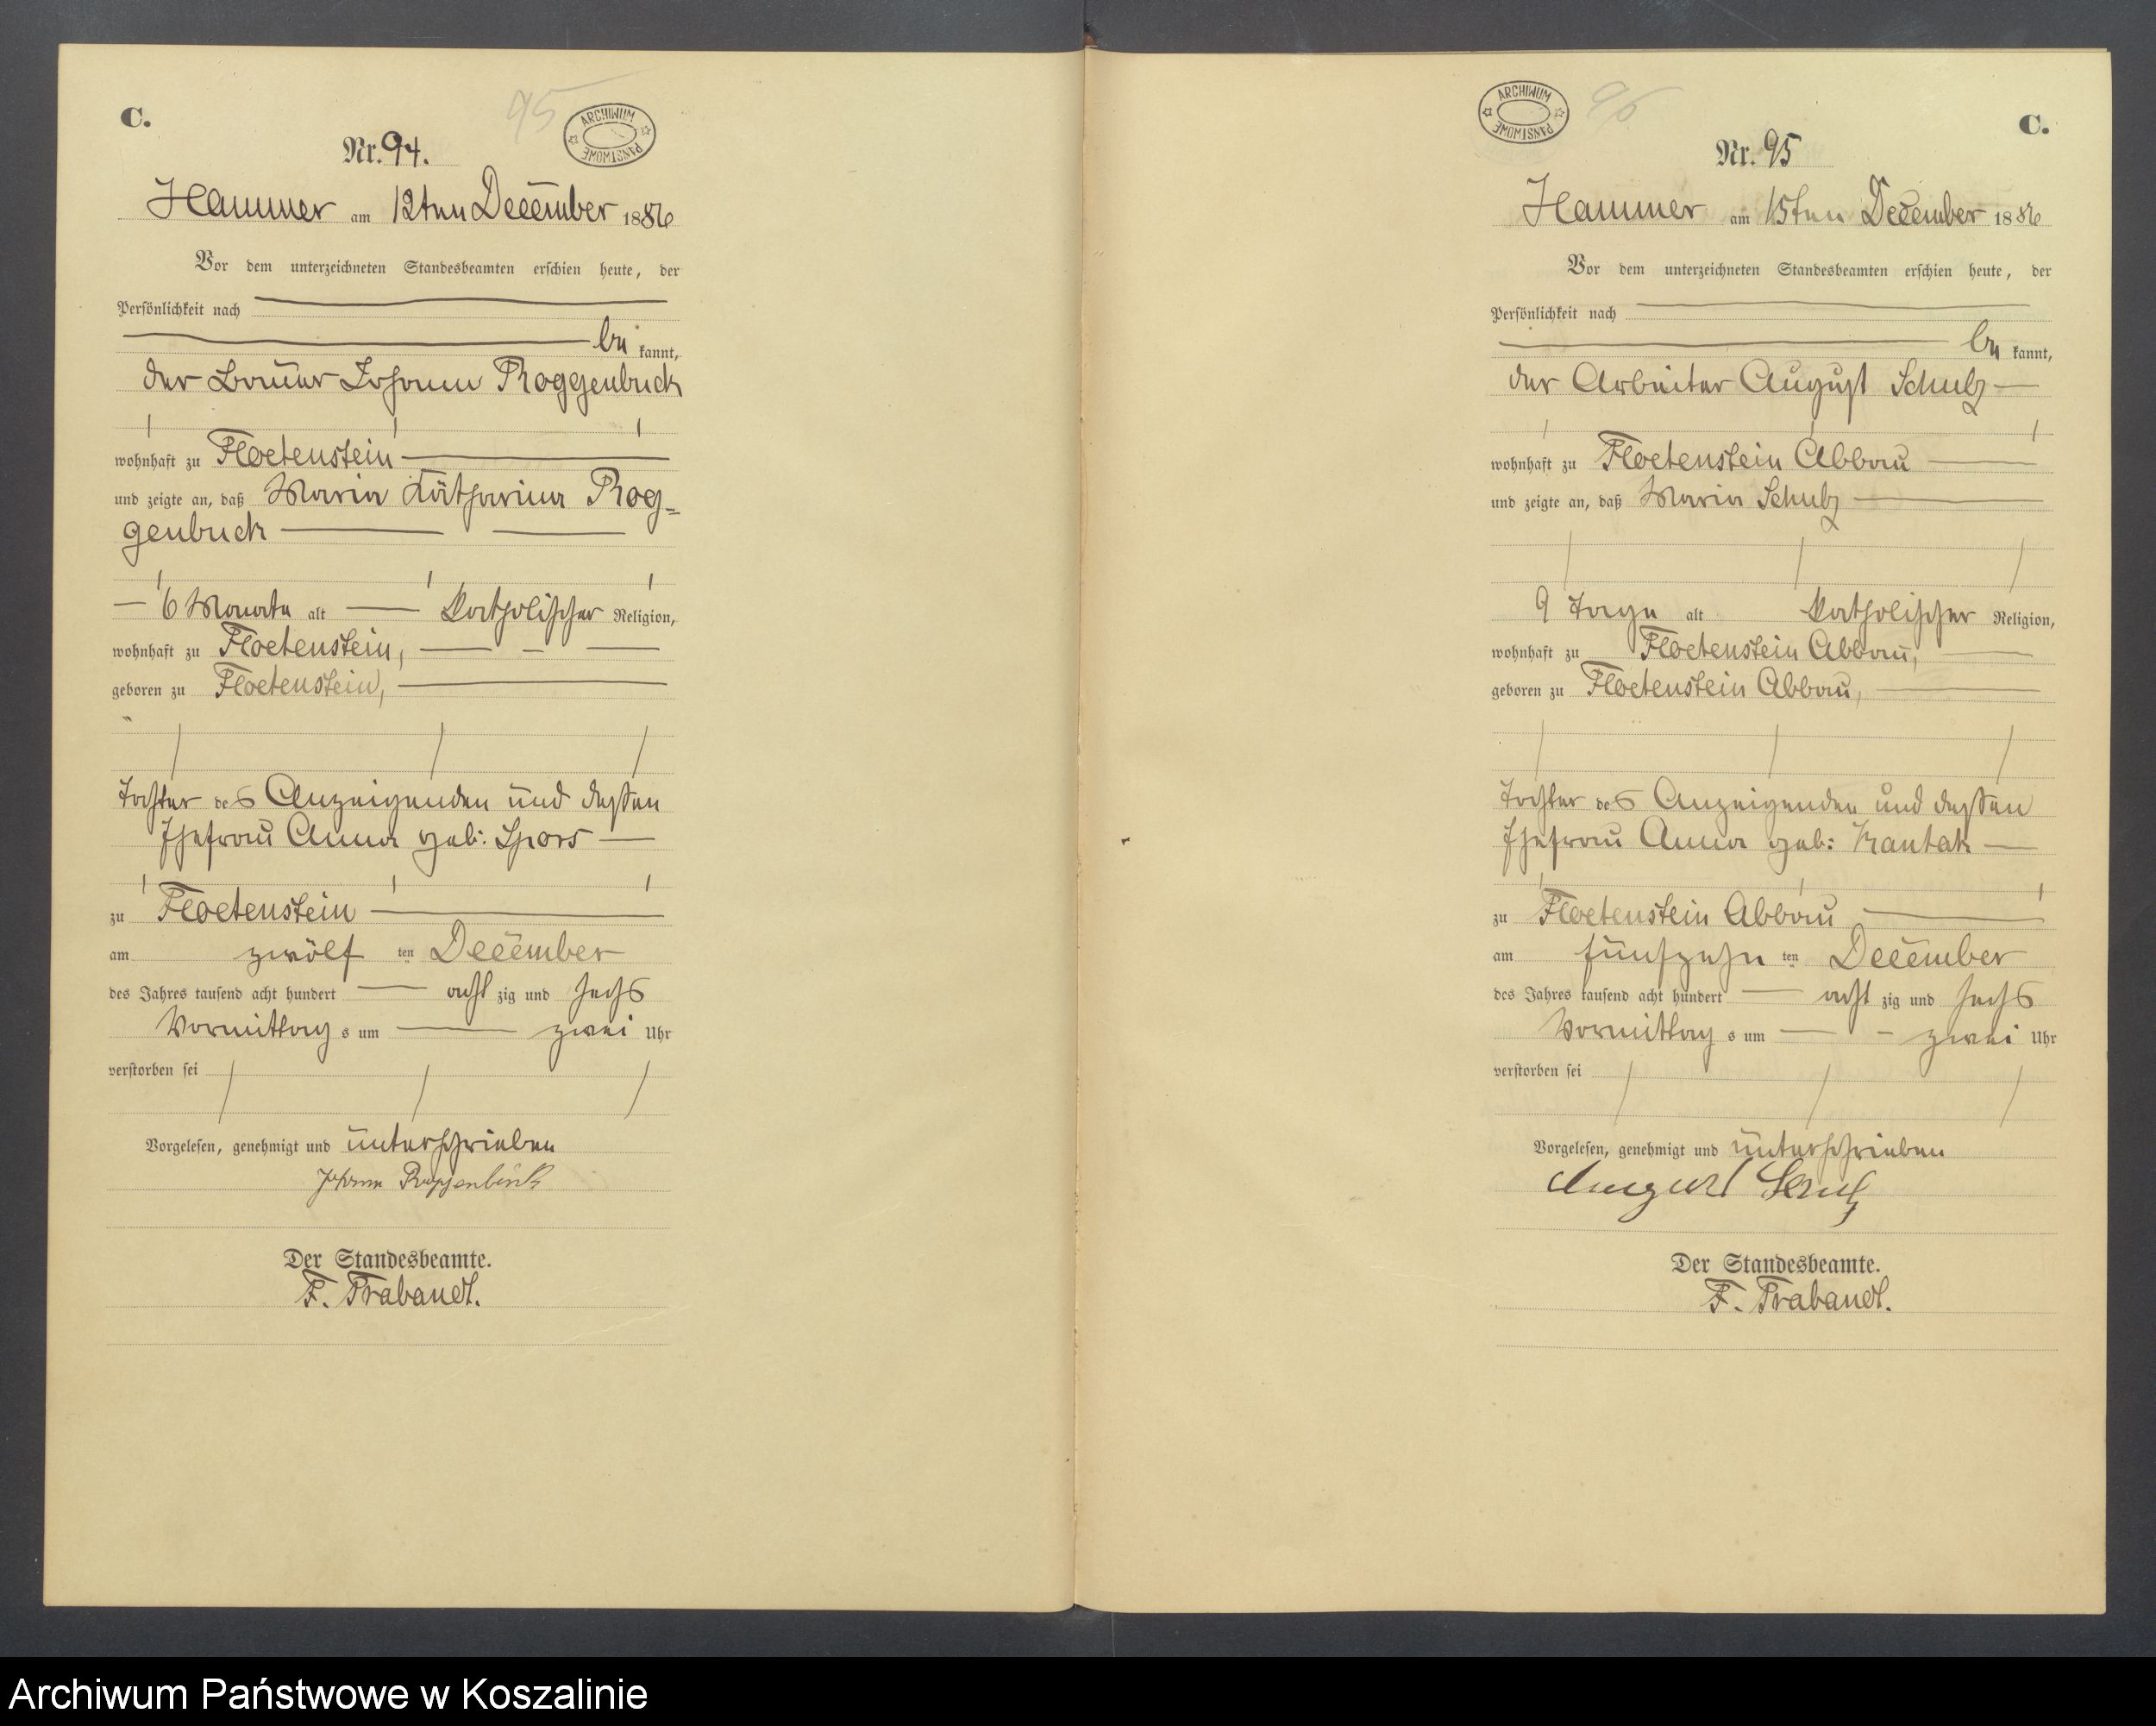 C.
95
ARCHIWUM PAŃSTWOWE
Nr. 94.
Hammer am 12ten December 1886
Vor dem unterzeichneten Standesbeamten erschien heute, der
Persönlichkeit nach
be kannt,
der Bauer Johann Roggenbuck
wohnhaft zu Floetenstein
und zeigte an, daß Maria Katharina Rog=
genbuck
6 Monate alt katholischer Religion,
wohnhaft zu Floetenstein,
geboren zu Floetenstein,
Tochter des Anzeigenden und dessen
Ehefrau Anna geb: Spors
zu Floetenstein
am zwölf ten December
des Jahres tausend acht hundert acht zig und sechs
Vormittag s um zwei Uhr
verstorben sei
Vorgelesen, genehmigt und unterschrieben
Johann Roggenbuck
Der Standesbeamte.
F. Trabandt.
ARCHIWUM PAŃSTWOWE
96
C.
Nr. 95
Hammer am 15ten December 1886
Vor dem unterzeichneten Standesbeamten erschien heute, der
Persönlichkeit nach
be kannt,
der Arbeiter August Schulz
wohnhaft zu Floetenstein Abbau
und zeigte an, daß Maria Schulz
9 Tage alt katholischer Religion,
wohnhaft zu Floetenstein Abbau,
geboren zu Floetenstein Abbau,
Tochter des Anzeigenden und dessen
Ehefrau Anna geb: Kantak
zu Floetenstein Abbau
am fünfzehn ten December
des Jahres tausend acht hundert acht zig und sechs
Vormittag s um zwei Uhr
verstorben sei
Vorgelesen, genehmigt und unterschrieben
August Schulz
Der Standesbeamte.
F. Trabandt.
Archiwum Państwowe w Koszalinie